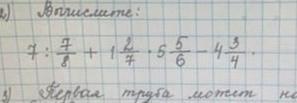 2) Вычислите:
7 : 7/8 + 1 2/7 · 5 5/6 − 4 3/4 .
3) Первая труба может